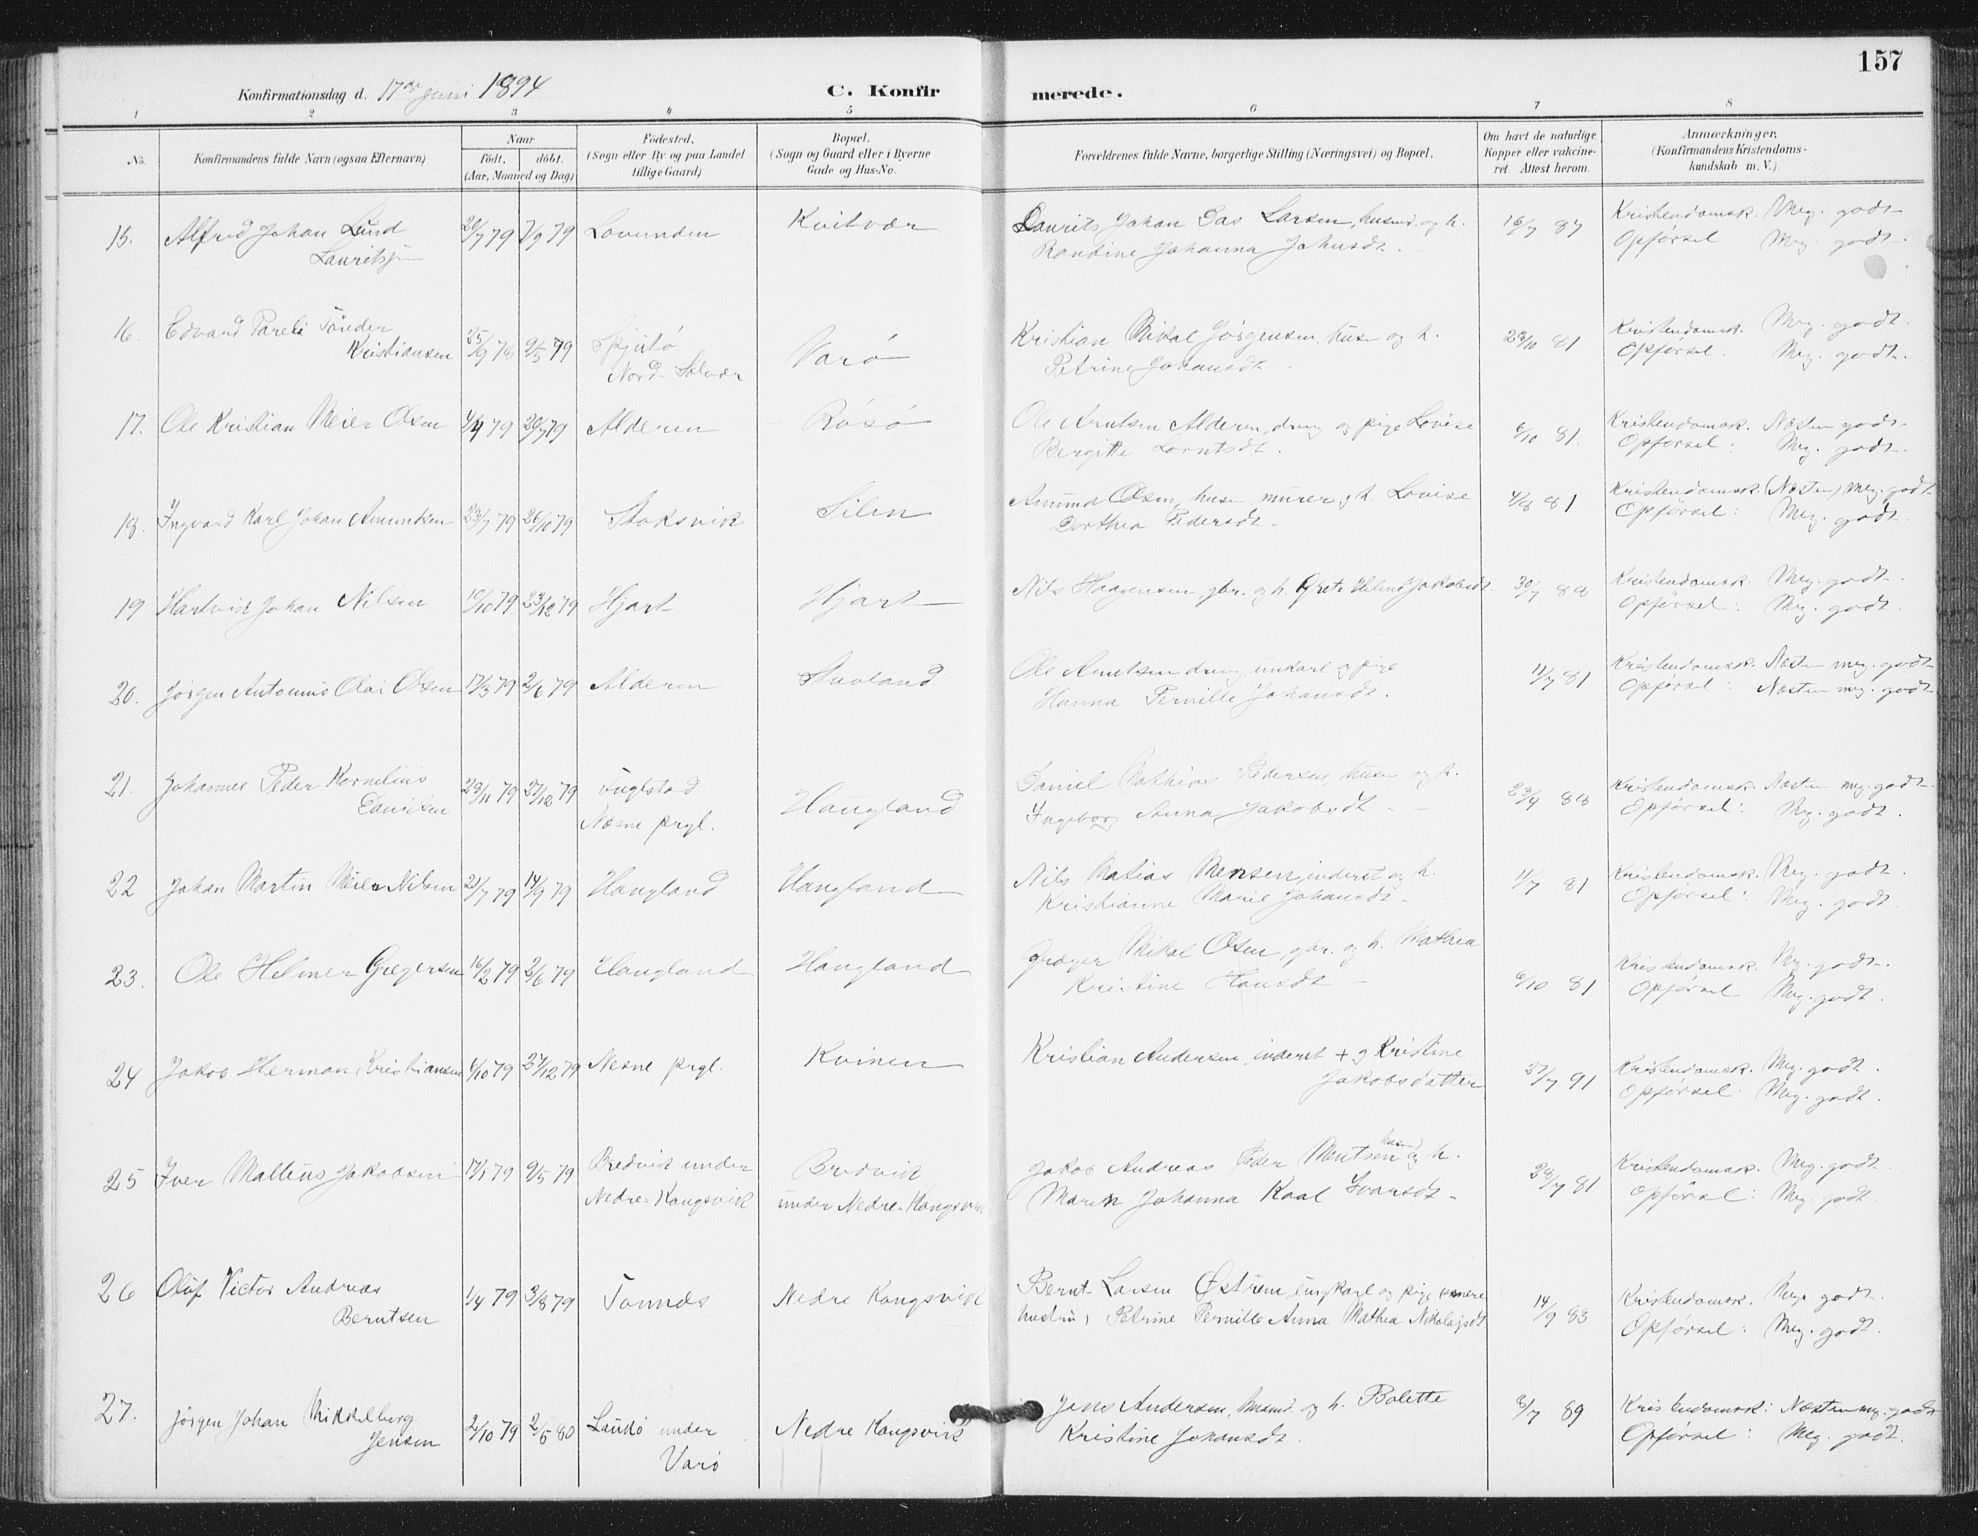 157
Konfirmationsdag d. 17de juni 1894
C. Konfirmerede.
1 2 3 4 5 6 7 8
No. Konfirmandens fulde Navn (ogsaa Efternavn)
Naar født. døbt. (Aar, Maaned og Dag)
Födested. (Sogn eller By og paa Landet tillige Gaard)
Bopæl. (Sogn og Gaard eller i Byerne Gade og Hus-No.
Forældrenes fulde Navne, borgerlige Stilling (Næringsvei) og Bopæl.
Om havt de naturlige Kopper eller vakcineret. Attest herom.
Anmærkninger. (Konfirmandens Kristendomskundskab m. V.)
15. Alfred Johan Lund Lauritsen 20/7 79 7/9 79 Lovunden Kvitvær
Laurits Johan Das Larsen, husmd. og h. Randine Johanna Johnsdt. 16/7 87
Kristendomsk. Meg. godt
Opførsel Meg. godt.
16. Edvard Pareli Tönder Kristiansen 25/9 78 9/5 79 Nord-Solvær Varø
Kristian Mikal Jörgensen, husm og h. Petrine Johansdt. 23/10 81
Kristendomsk. Meg. godt.
Opførsel. Meg. godt.
17. Ole Kristian Meier Olsen 4/4 79 20/7 79 Alderen Rösö
Ole Arntsen Alderen, dreng og pige Lovise Bergitte Lorntsdt. 6/10 81.
Kristendomsk. Næsten godt.
Opførsel: Meg. godt.
18. Ingvard Karl Johan Amundsen 23/7 79 26/10 79 Stoksvik Silen
Amund Olsen, husm, murer og h. Lovise Dorthea Pedersdt. 4/8 81
Kristendomsk. (Næsten) meg. godt
Opførsel: Meg. godt.
19 Hartvik Johan Nilsen 10/10 79 23/12 79 Hjart Hjart
Nils Haagensen, gbr. og h. Grete Helene Jakobsdt. 30/7 88
Kristendomsk. Meg. godt.
Opførsel: Meg. godt.
20. Jørgen Antonius Olai Olsen 17/3 79 2/6 79 Alderen Stuvland
Ole Arntsen dreng, unkarl og pige Hanna Pernille Johansdt. 11/7 81
Kristendomsk. Næsten meg. godt
Opførsel: Næsten meg. godt
21. Johannes Peder Kornelius Danielsen 29/11 79 27/12 79 Fuglstad Næsne prgl. Haugland
Daniel Mathias Pedersen, husm og h. Ingeborg Anna Jakobsdt. 23/4 88
Kristendomsk. Næsten meg. godt.
Opførsel: Meg. godt.
22 Johan Martin Meier Nilsen 21/7 79 14/9 79 Haugland Haugland
Nils Matias Mensen, inderst og h. Kristianne Marie Johansdt. 11/7 81
Kristendomsk. Meg. godt.
Opførsel: Meg. godt.
23. Ole Helmer Gregersen 16/2 79 2/6 79 Haugland Haugland
Græger Mikal Olsen, gbr. og h. Mathea Kristine Hansdt 6/10 81
Kristendomsk. Meg. godt.
Opførsel Meg. godt.
24 Jakob Herman Kristiansen 4/10 79 27/12 79 Nesne prgl. Kvinen
Kristian Andersen, inderst + og Kristine Jakobsdatter 27/7 91
Kristendomsk. Meg. godt.
Opførsel: Meg. godt.
25 Iver Malleus Jakobsen 17/1 79 9/5 79 Bredvik under Nedre-Kongsvik Bredvik under Nedre-Kongsvik
Jakob Andreas Peder Mentsen husmd og h. Maren Johanna Kaal Ivarsdt. 28/7 81
Kristendomsk. Meg. godt.
Opførsel: Meg. godt
26 Oluf Victor Andreas Berntsen 1/4 79 3/8 79 Tonnes Nedre Kongsvik
Bernt Larsen Östrem, ungkarl og pige (senere hustru) Petrine Pernille Anna Mathea Nikolajsdt 14/9 83
Kristendomsk. Meg. godt.
Opførsel: Meg. godt.
27. Jørgen Johan Mikkelberg Jensen 2/10 79 2/5 80 Laukö under Varö Nedre Kongsvik
Jens Andersen, husmd. og h. Bolette Kristine Johansdt. 8/7 89
Kristendomsk: Næsten meg. godt
Opførsel: Meg. godt.